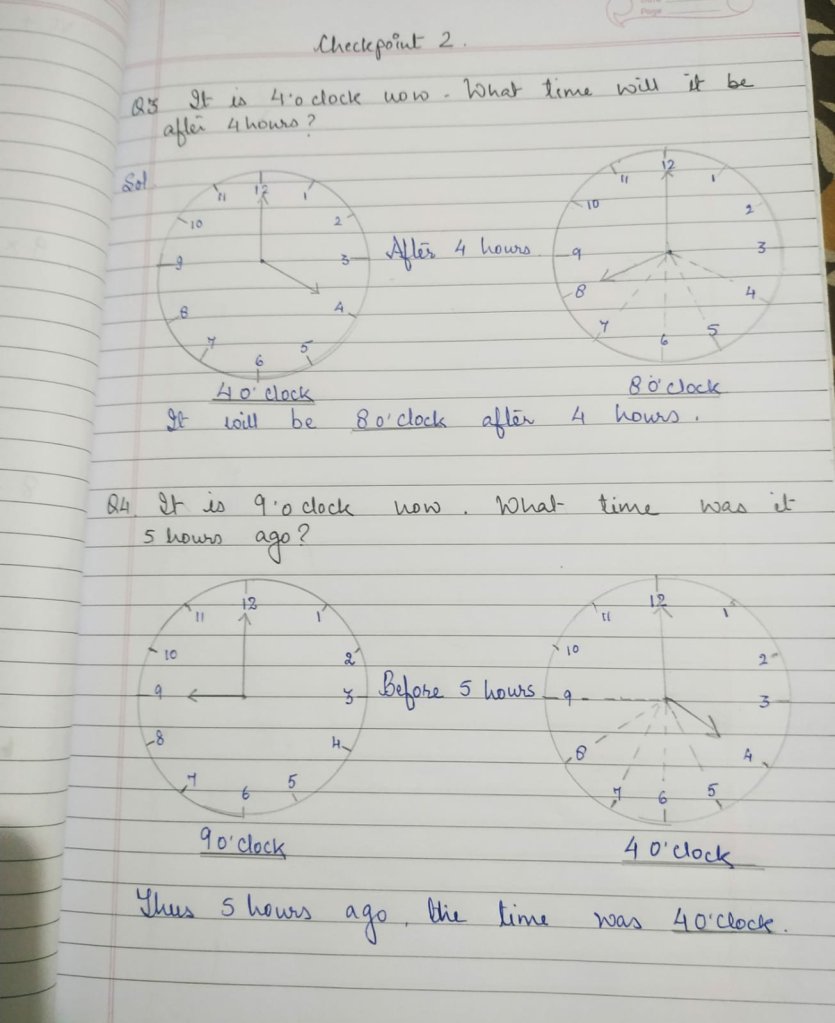 Page
Checkpoint 2.
Q3 It is 4'o clock now. What time will it be
after 4 hours?
Sol.
12
1
2
3
4
5
6
7
8
9
10
11
4 o'clock
After 4 hours
12
1
2
3
4
5
6
7
8
9
10
11
8 o'clock
It will be 8 o'clock after 4 hours.
Q4. It is 9'o clock now. What time was it
5 hours ago?
12
1
2
3
4
5
6
7
8
9
10
11
9 o'clock
Before 5 hours
12
1
2
3
4
5
6
7
8
9
10
11
4 o'clock
Thus 5 hours ago, the time was 4 o'clock.